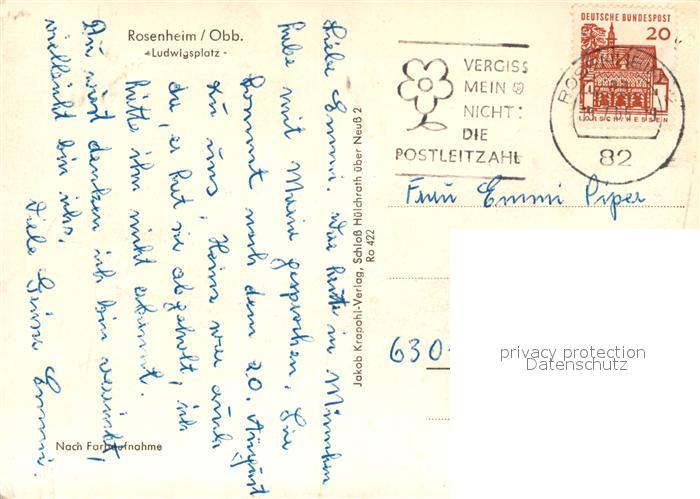 Rosenheim / Obb.
- Ludwigsplatz -
Liebe Emmi. War heute in München
habe mit Marie gesprochen. Sie
kommt nach dem 20. August
zu uns, Heinz war auch
da, er hat sie abgeholt, ich
hätte ihn nicht erkannt.
Du wirst denken ich bin verrückt,
vielleicht bin ichs.
Viele Grüße Emmi.
Nach Farbaufnahme
Jakob Krapohl-Verlag, Schloß Hülchrath über Neuß 2
Ro 422
VERGISS
MEIN
NICHT:
DIE
POSTLEITZAHL
DEUTSCHE BUNDESPOST
20
LORSCH/HESSEN
ROSENHEIM
82
Frau Emmi Piper
630
privacy protection
Datenschutz